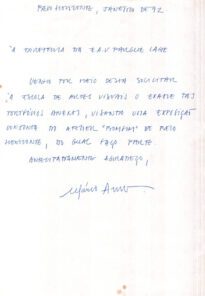 BELO HORIZONTE, JANEIRO DE 92
À DIRETORIA DA E.A.V PARQUE LAGE
VENHO POR MEIO DESTA SOLICITAR
À ESCOLA DE ARTES VISUAIS O EXAME DOS
PORTFÓLIOS ANEXOS, VISANDO UMA EXPOSIÇÃO
CONJUNTA DO ATELIER "POMPOM" DE BELO
HORIZONTE, DO QUAL FAÇO PARTE.
ANTECIPADAMENTE AGRADEÇO,